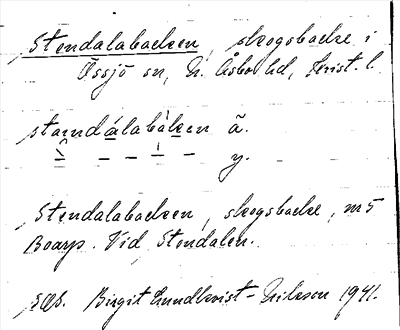 Stendalabacken, skogsbacke i
Össjö sn, N. Åsbo hd, Krist. l.
stændálabàken ã.
– – – – y.
Stendalabacken, skogsbacke, nr 5
Boarp. Vid Stendalen.
Birgit Lundkvist-Nilsson 1941.